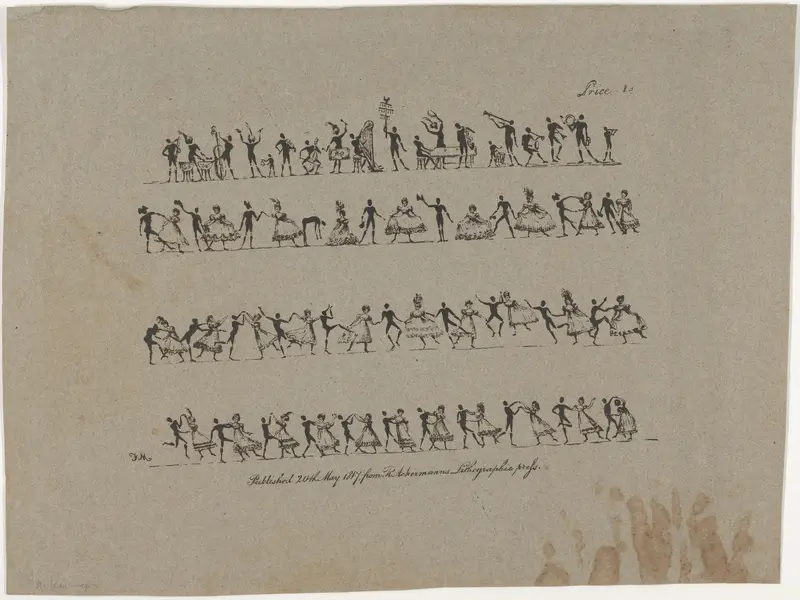 Price 1s
Published 20th May 1817, from R. Ackermann's Lithographic press.